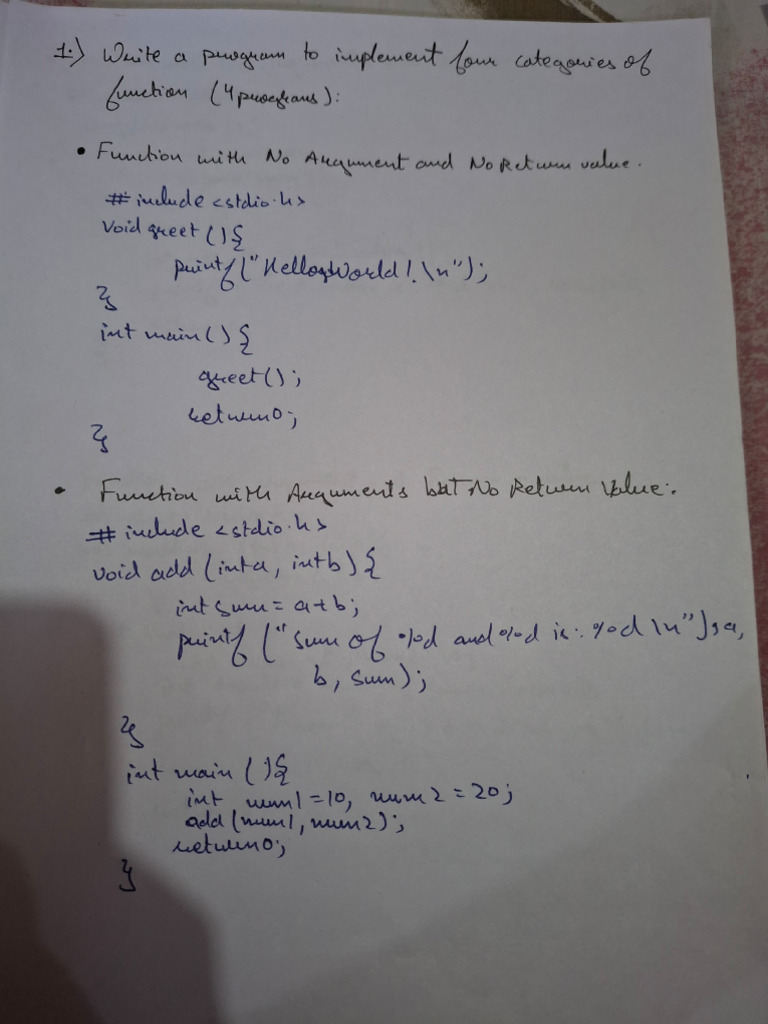 1.) Write a program to implement four categories of
function (4 programs):
• Function with No Argument and No Return value.
# include <stdio.h>
void greet () {
printf ("Hello, World! \n");
}
int main () {
greet ();
return 0;
}
• Function with Arguments but No Return Value:.
# include <stdio.h>
void add (int a, int b) {
int sum = a + b;
printf ("Sum of %d and %d is: %d \n"), a,
b, sum);
}
int main () {
int num1 = 10, num2 = 20;
add (num1, num2);
return 0;
}